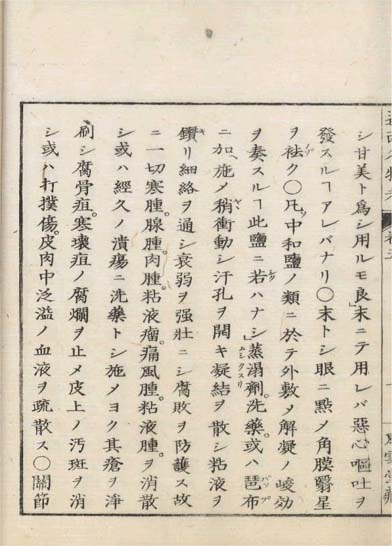 シ甘美ト爲シ用ルモ良」末ニテ用レバ惡心嘔吐ヲ
發スルヿアレバナリ〇末トシ眼ニ點メ角膜翳星
ヲ袪ク〇凡ソ中和鹽ノ類ニ於テ外敷メ解凝ノ峻効
ヲ奏スルヿ此鹽ニ若ハナシ」蒸溻劑。洗藥。或ハ琶布
ニ加ヘ施メ稍衝動シ汗孔ヲ開キ凝結ヲ散シ粘液ヲ
鑽リ細絡ヲ通シ衰弱ヲ强壯ニシ腐敗ヲ防護ス故
ニ一切寒腫。腺腫。肉腫。粘液瘤。痛風腫。粘液腫。ヲ消散
シ或ハ經久ノ潰瘍ニ洗藥トシ施メヨク其瘡ヲ淨
刷シ腐骨疽。寒壞疽ノ腐爛ヲ止メ皮上ノ汚斑ヲ消
シ或ハ打撲傷。皮肉中泛溢ノ血液ヲ疏散ス〇關節